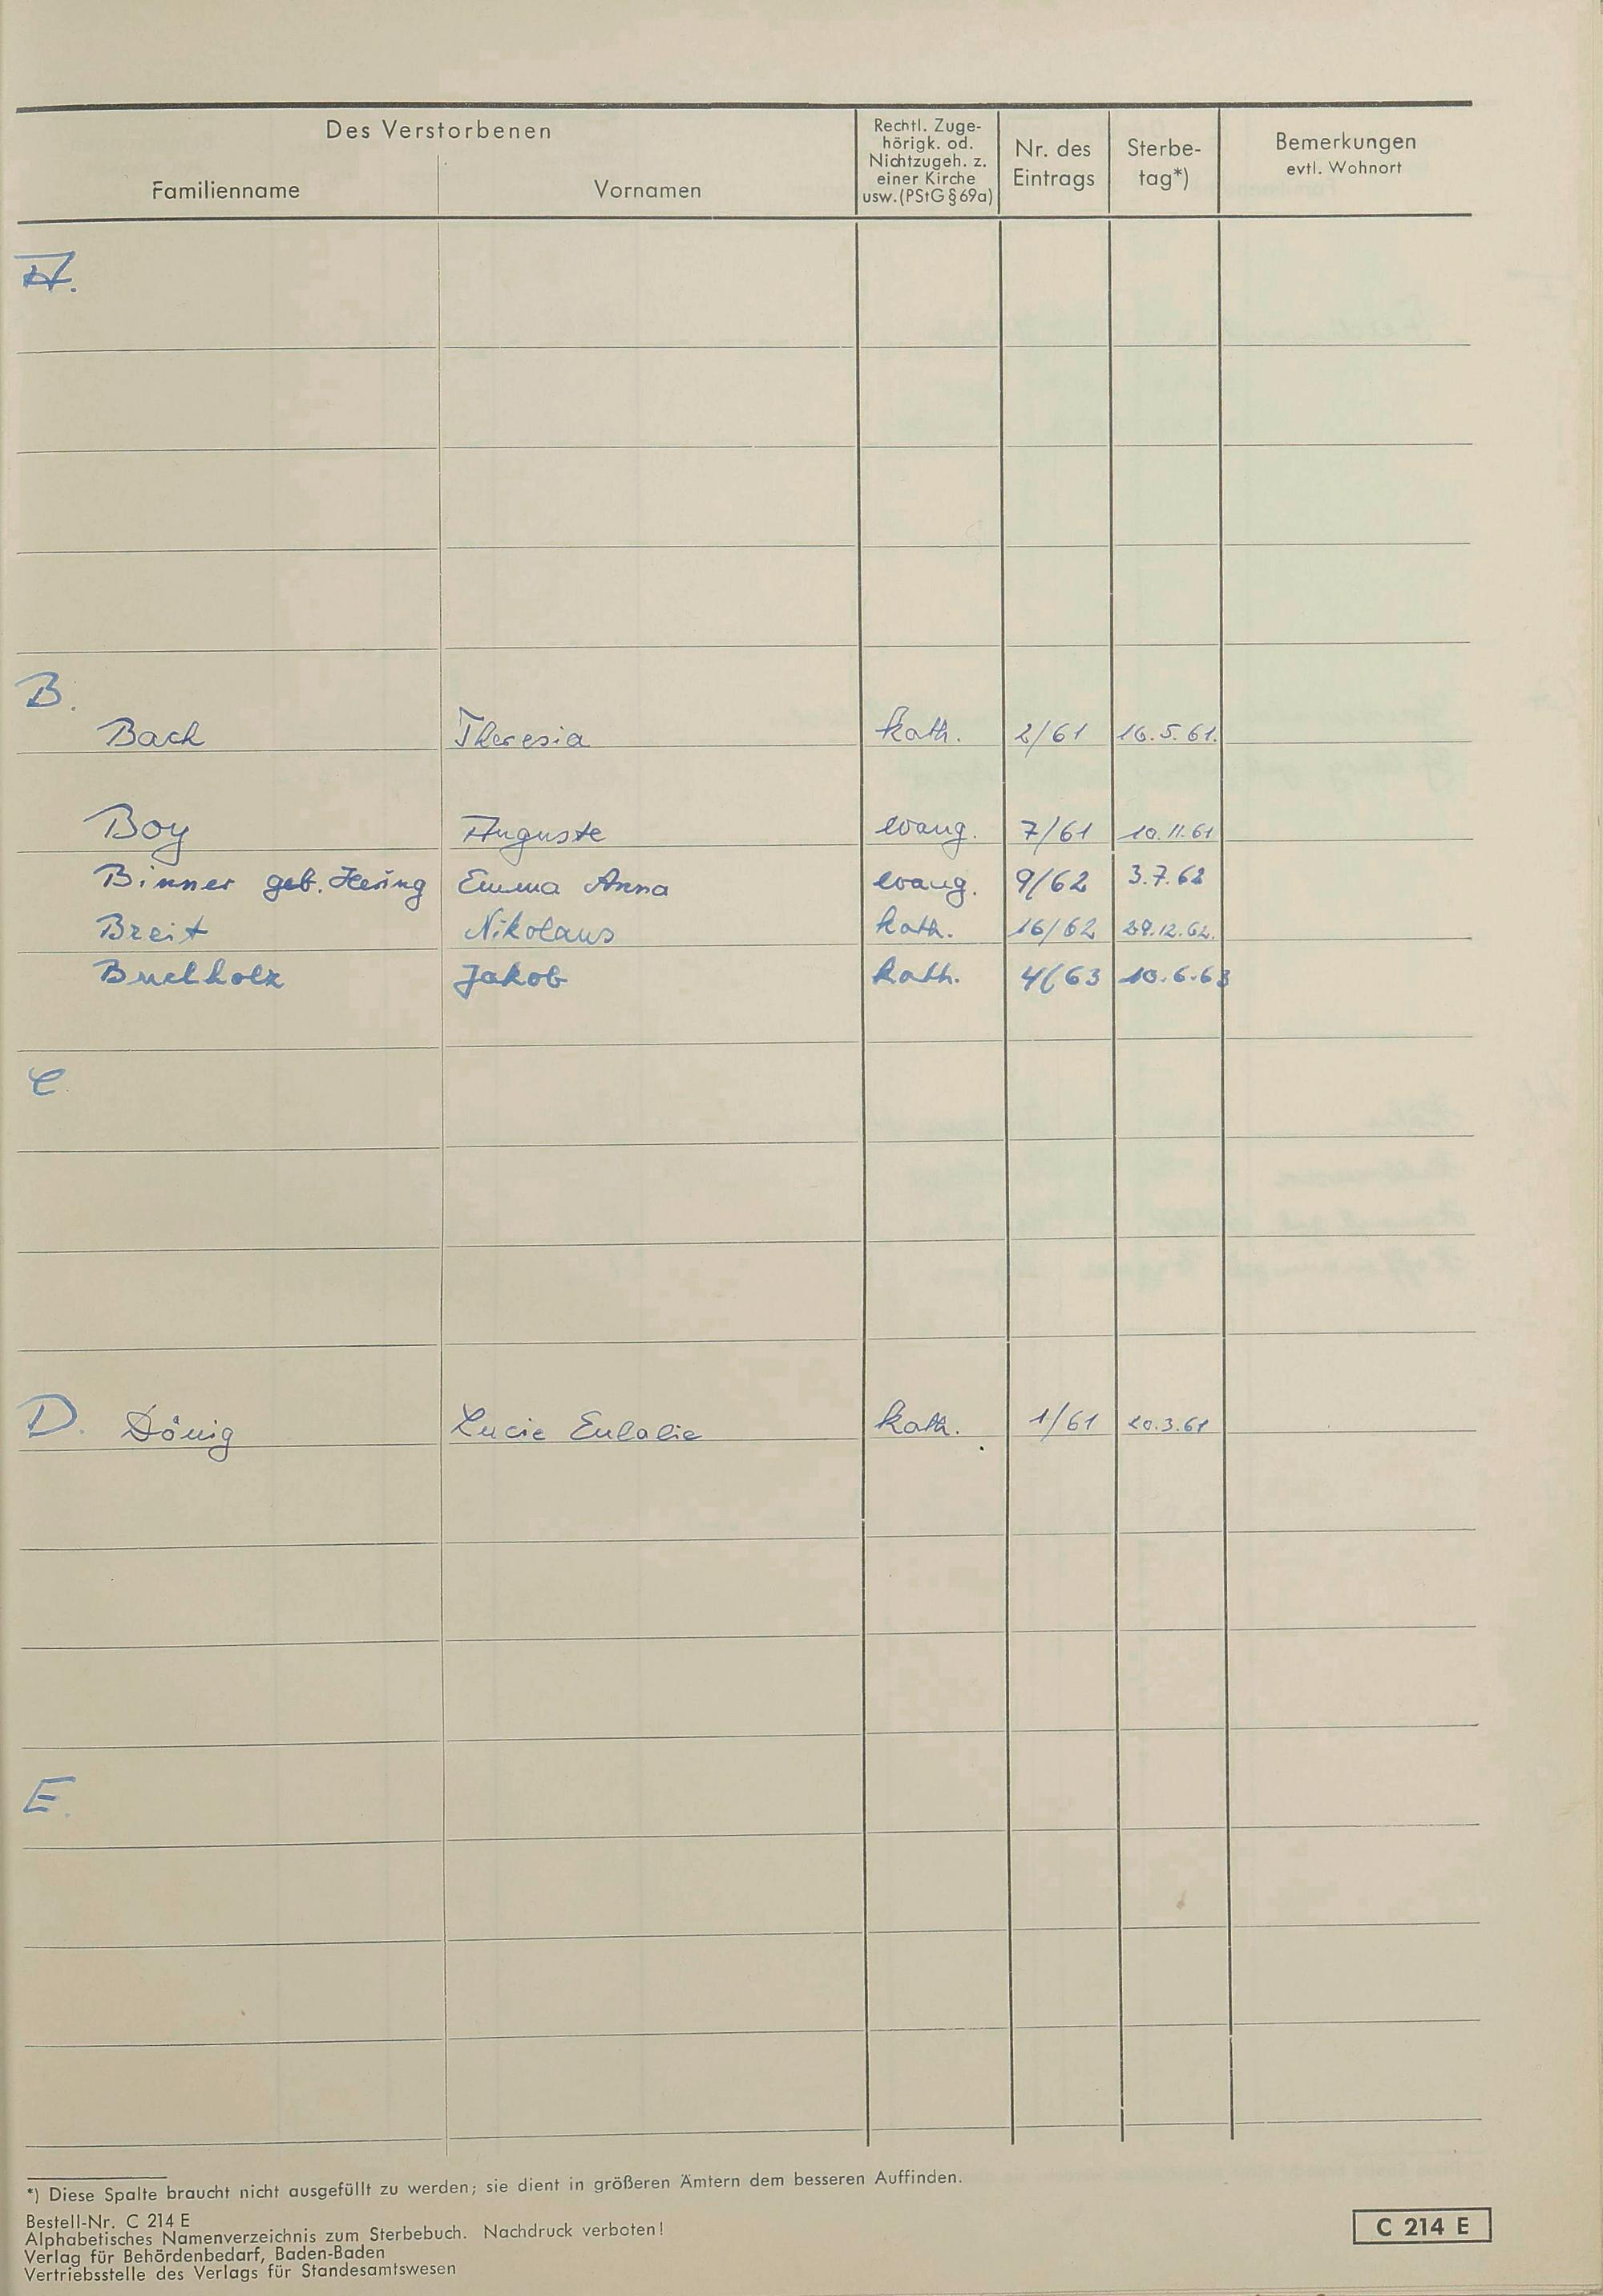 Des Verstorbenen
Familienname
Vornamen
Rechtl. Zuge-
hörigk. od.
Nichtzugeh. z.
einer Kirche
usw. (PStG § 69a)
Nr. des
Eintrags
Sterbe-
tag*)
Bemerkungen
evtl. Wohnort
A.
B.
Bach Theresia kath. 2/61 16.5.61.
Boy Auguste evang. 7/61 10.11.61
Binner geb. Hering Emma Anna evang. 9/62 3.7.62
Breit Nikolaus kath. 16/62 29.12.62.
Buchholz Jakob kath. 4/63 10.6.63
C.
D. Dönig Lucie Eulalie kath. 1/61 20.3.61
E.
*) Diese Spalte braucht nicht ausgefüllt zu werden; sie dient in größeren Ämtern dem besseren Auffinden.
Bestell-Nr. C 214 E
Alphabetisches Namenverzeichnis zum Sterbebuch. Nachdruck verboten!
Verlag für Behördenbedarf, Baden-Baden
Vertriebsstelle des Verlags für Standesamtswesen
C 214 E